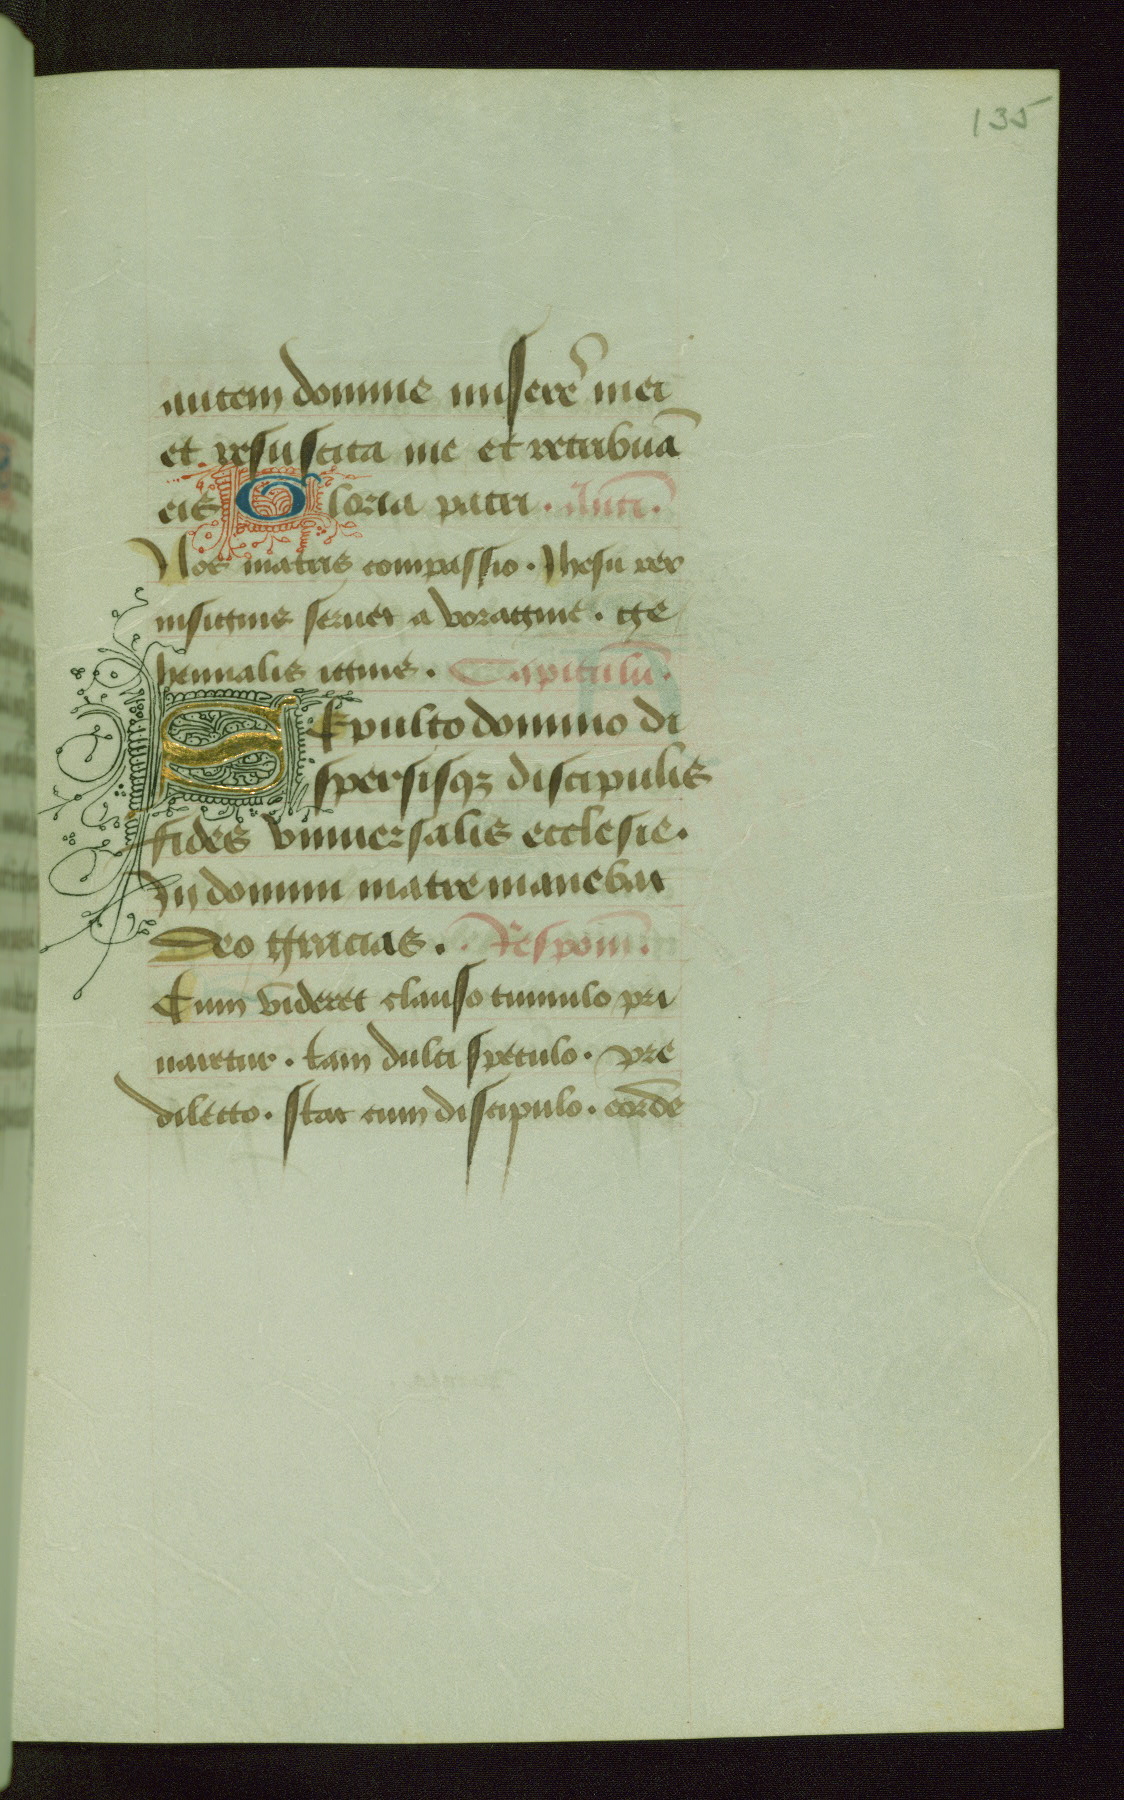 135
autem domine miserē mei
et resuscita me et retribuā
eis Gloria patri. Antı.
Nos matris compassio. Jhesu rex
insignis seruet a voragine. ge
hennalis ignis. Capitulū.
Sepulto domino di
spersisqz discipulis
fides vniuersalis ecclesie.
In domini matre manebat
Deo gracias. Respon.
Cum videret clauso tumulo pri
uaretur. tam dulci speculo. pre
dilecto. stat cum discipulo. corde